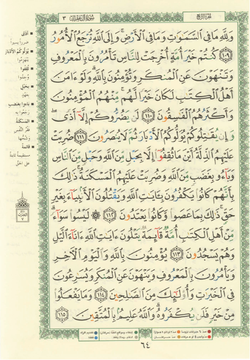 سورة آل عمران ٣
وَلِلَّهِ مَا فِي السَّمَوَاتِ وَمَا فِي الْأَرْضِ وَإِلَى اللَّهِ تُرْجَعُ الْأُمُورُ
١٠٩ كُنتُمْ خَيْرَ أُمَّةٍ أُخْرِجَتْ لِلنَّاسِ تَأْمُرُونَ بِالْمَعْرُوفِ
وَتَنْهَوْنَ عَنِ الْمُنكَرِ وَتُؤْمِنُونَ بِاللَّهِ وَلَوْ ءَامَنَ
أَهْلُ الْكِتَابِ لَكَانَ خَيْرًا لَّهُم مِّنْهُمُ الْمُؤْمِنُونَ
وَأَكْثَرُهُمُ الْفَاسِقُونَ ١١٠ لَن يَضُرُّوكُمْ إِلَّا أَذًى
وَإِن يُقَاتِلُوكُمْ يُوَلُّوكُمُ الْأَدْبَارَ ثُمَّ لَا يُنصَرُونَ ١١١ ضُرِبَتْ
عَلَيْهِمُ الذِّلَّةُ أَيْنَ مَا ثُقِفُوا إِلَّا بِحَبْلٍ مِّنَ اللَّهِ وَحَبْلٍ مِّنَ النَّاسِ
وَبَاءُو بِغَضَبٍ مِّنَ اللَّهِ وَضُرِبَتْ عَلَيْهِمُ الْمَسْكَنَةُ ذَلِكَ
بِأَنَّهُمْ كَانُوا يَكْفُرُونَ بِآيَاتِ اللَّهِ وَيَقْتُلُونَ الْأَنبِيَاءَ بِغَيْرِ
حَقٍّ ذَلِكَ بِمَا عَصَوا وَّكَانُوا يَعْتَدُونَ ١١٢ لَيْسُوا سَوَاءً
مِّنْ أَهْلِ الْكِتَابِ أُمَّةٌ قَائِمَةٌ يَتْلُونَ ءَايَاتِ اللَّهِ ءَانَاءَ اللَّيْلِ
وَهُمْ يَسْجُدُونَ ١١٣ يُؤْمِنُونَ بِاللَّهِ وَالْيَوْمِ الْآخِرِ
وَيَأْمُرُونَ بِالْمَعْرُوفِ وَيَنْهَوْنَ عَنِ الْمُنكَرِ وَيُسَارِعُونَ
فِي الْخَيْرَاتِ وَأُولَئِكَ مِنَ الصَّالِحِينَ ١١٤ وَمَا يَفْعَلُوا
مِنْ خَيْرٍ فَلَن يُكْفَرُوهُ وَاللَّهُ عَلِيمٌ بِالْمُتَّقِينَ ١١٥
٦٤